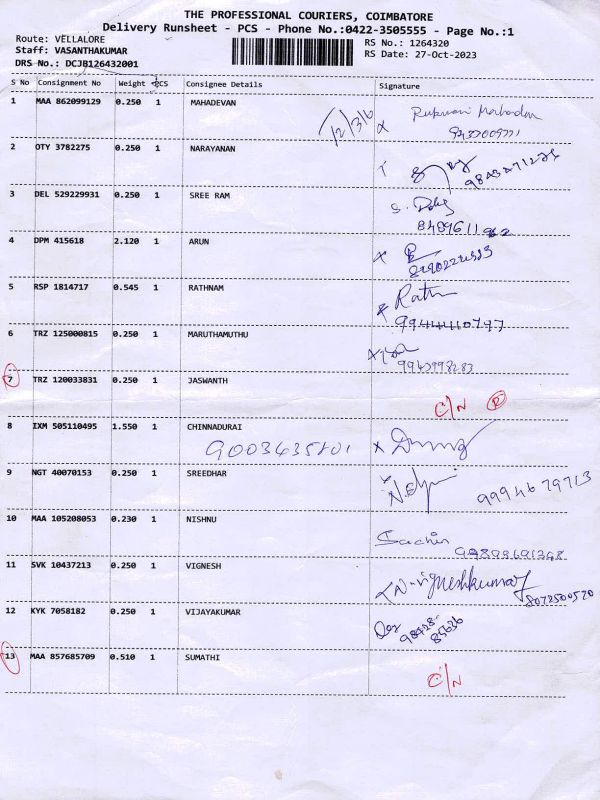 THE PROFESSIONAL COURIERS, COIMBATORE
Delivery Runsheet - PCS - Phone No.:0422-3505555 - Page No.:1
Route: VELLALORE
Staff: VASANTHAKUMAR
DRS No.: DCJB126432001
RS No.: 1264320
RS Date: 27-Oct-2023
S No Consignment No Weight PCS Consignee Details Signature
1 MAA 862099129 0.250 1 MAHADEVAN
12/3/6
X
2 OTY 3782275 0.250 1 NARAYANAN
3 DEL 529229931 0.250 1 SREE RAM
4 DPM 415618 2.120 1 ARUN
X
5 RSP 1814717 0.545 1 RATHNAM
6 TRZ 125000815 0.250 1 MARUTHAMUTHU
X
7 TRZ 120033831 0.250 1 JASWANTH
C/N R
8 IXM 505110495 1.550 1 CHINNADURAI
X
9 NGT 40070153 0.250 1 SREEDHAR
9994679713
10 MAA 105208053 0.230 1 NISHNU
Sachin
11 SVK 10437213 0.250 1 VIGNESH
N-vigneshkumar
8072500520
12 KYK 7058182 0.250 1 VIJAYAKUMAR
13 MAA 857685709 0.510 1 SUMATHI
C/N